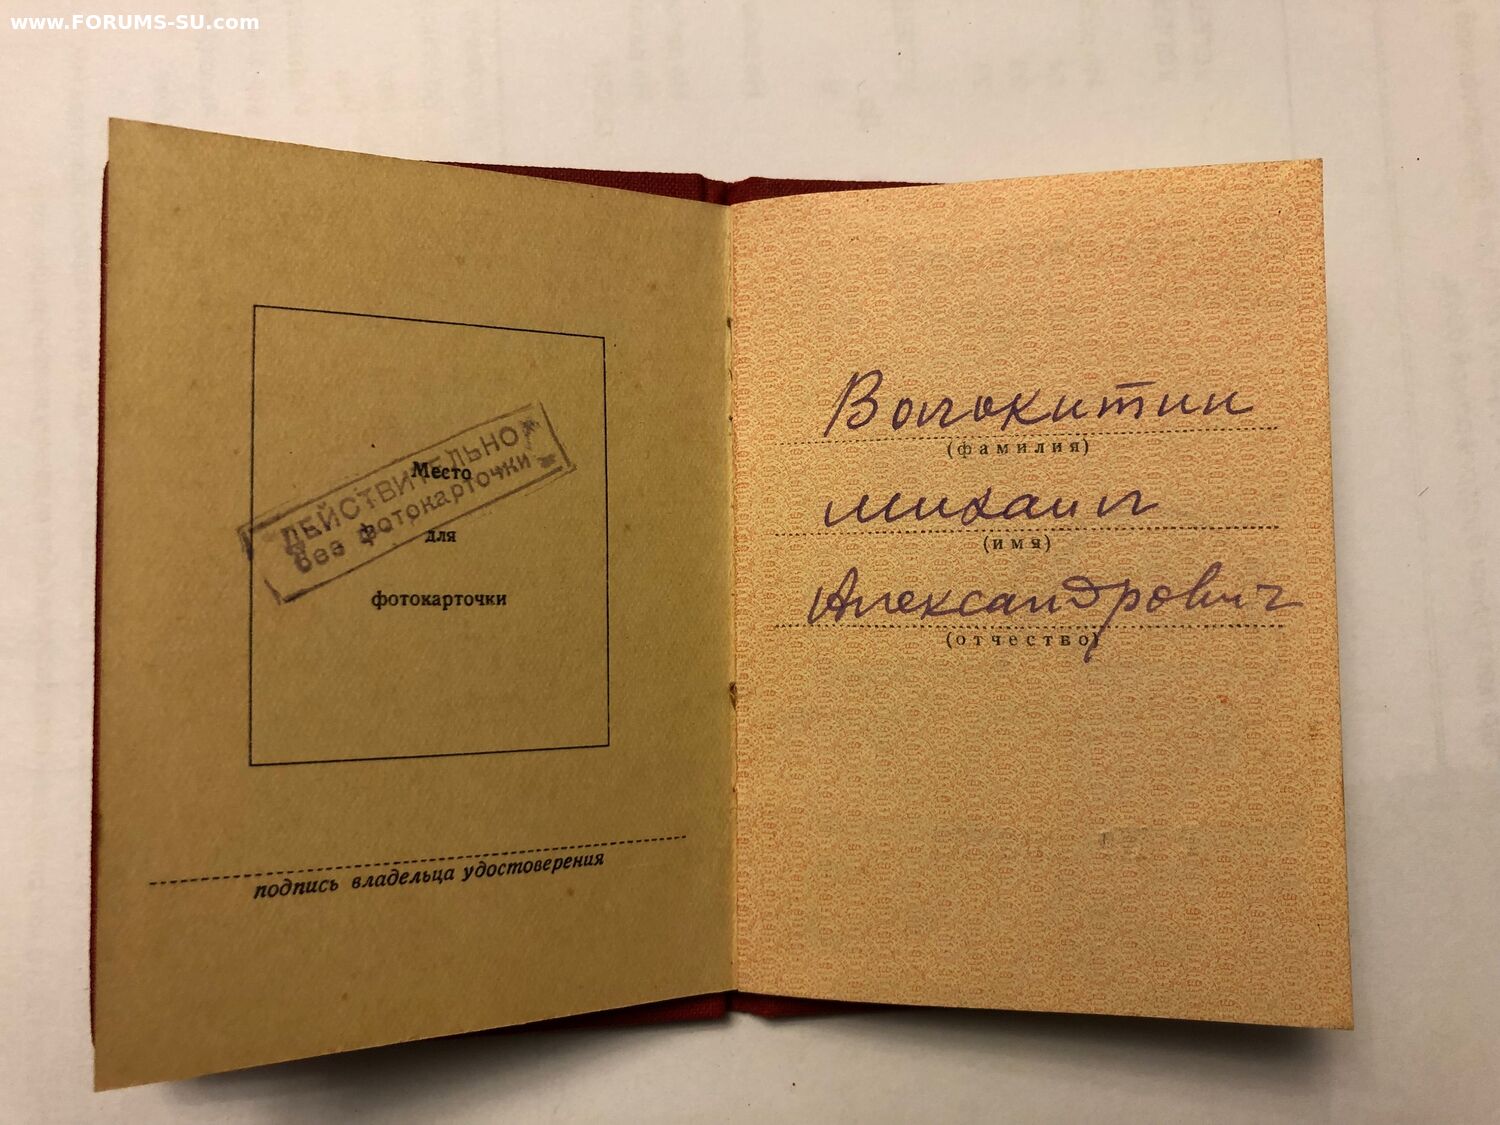 www.FORUMS-SU.com
ДЕЙСТВИТЕЛЬНО
без фотокарточки
Место
для
фотокарточки
подпись владельца удостоверения
Волокитин
(фамилия)
Михаил
(имя)
Александрович
(отчество)